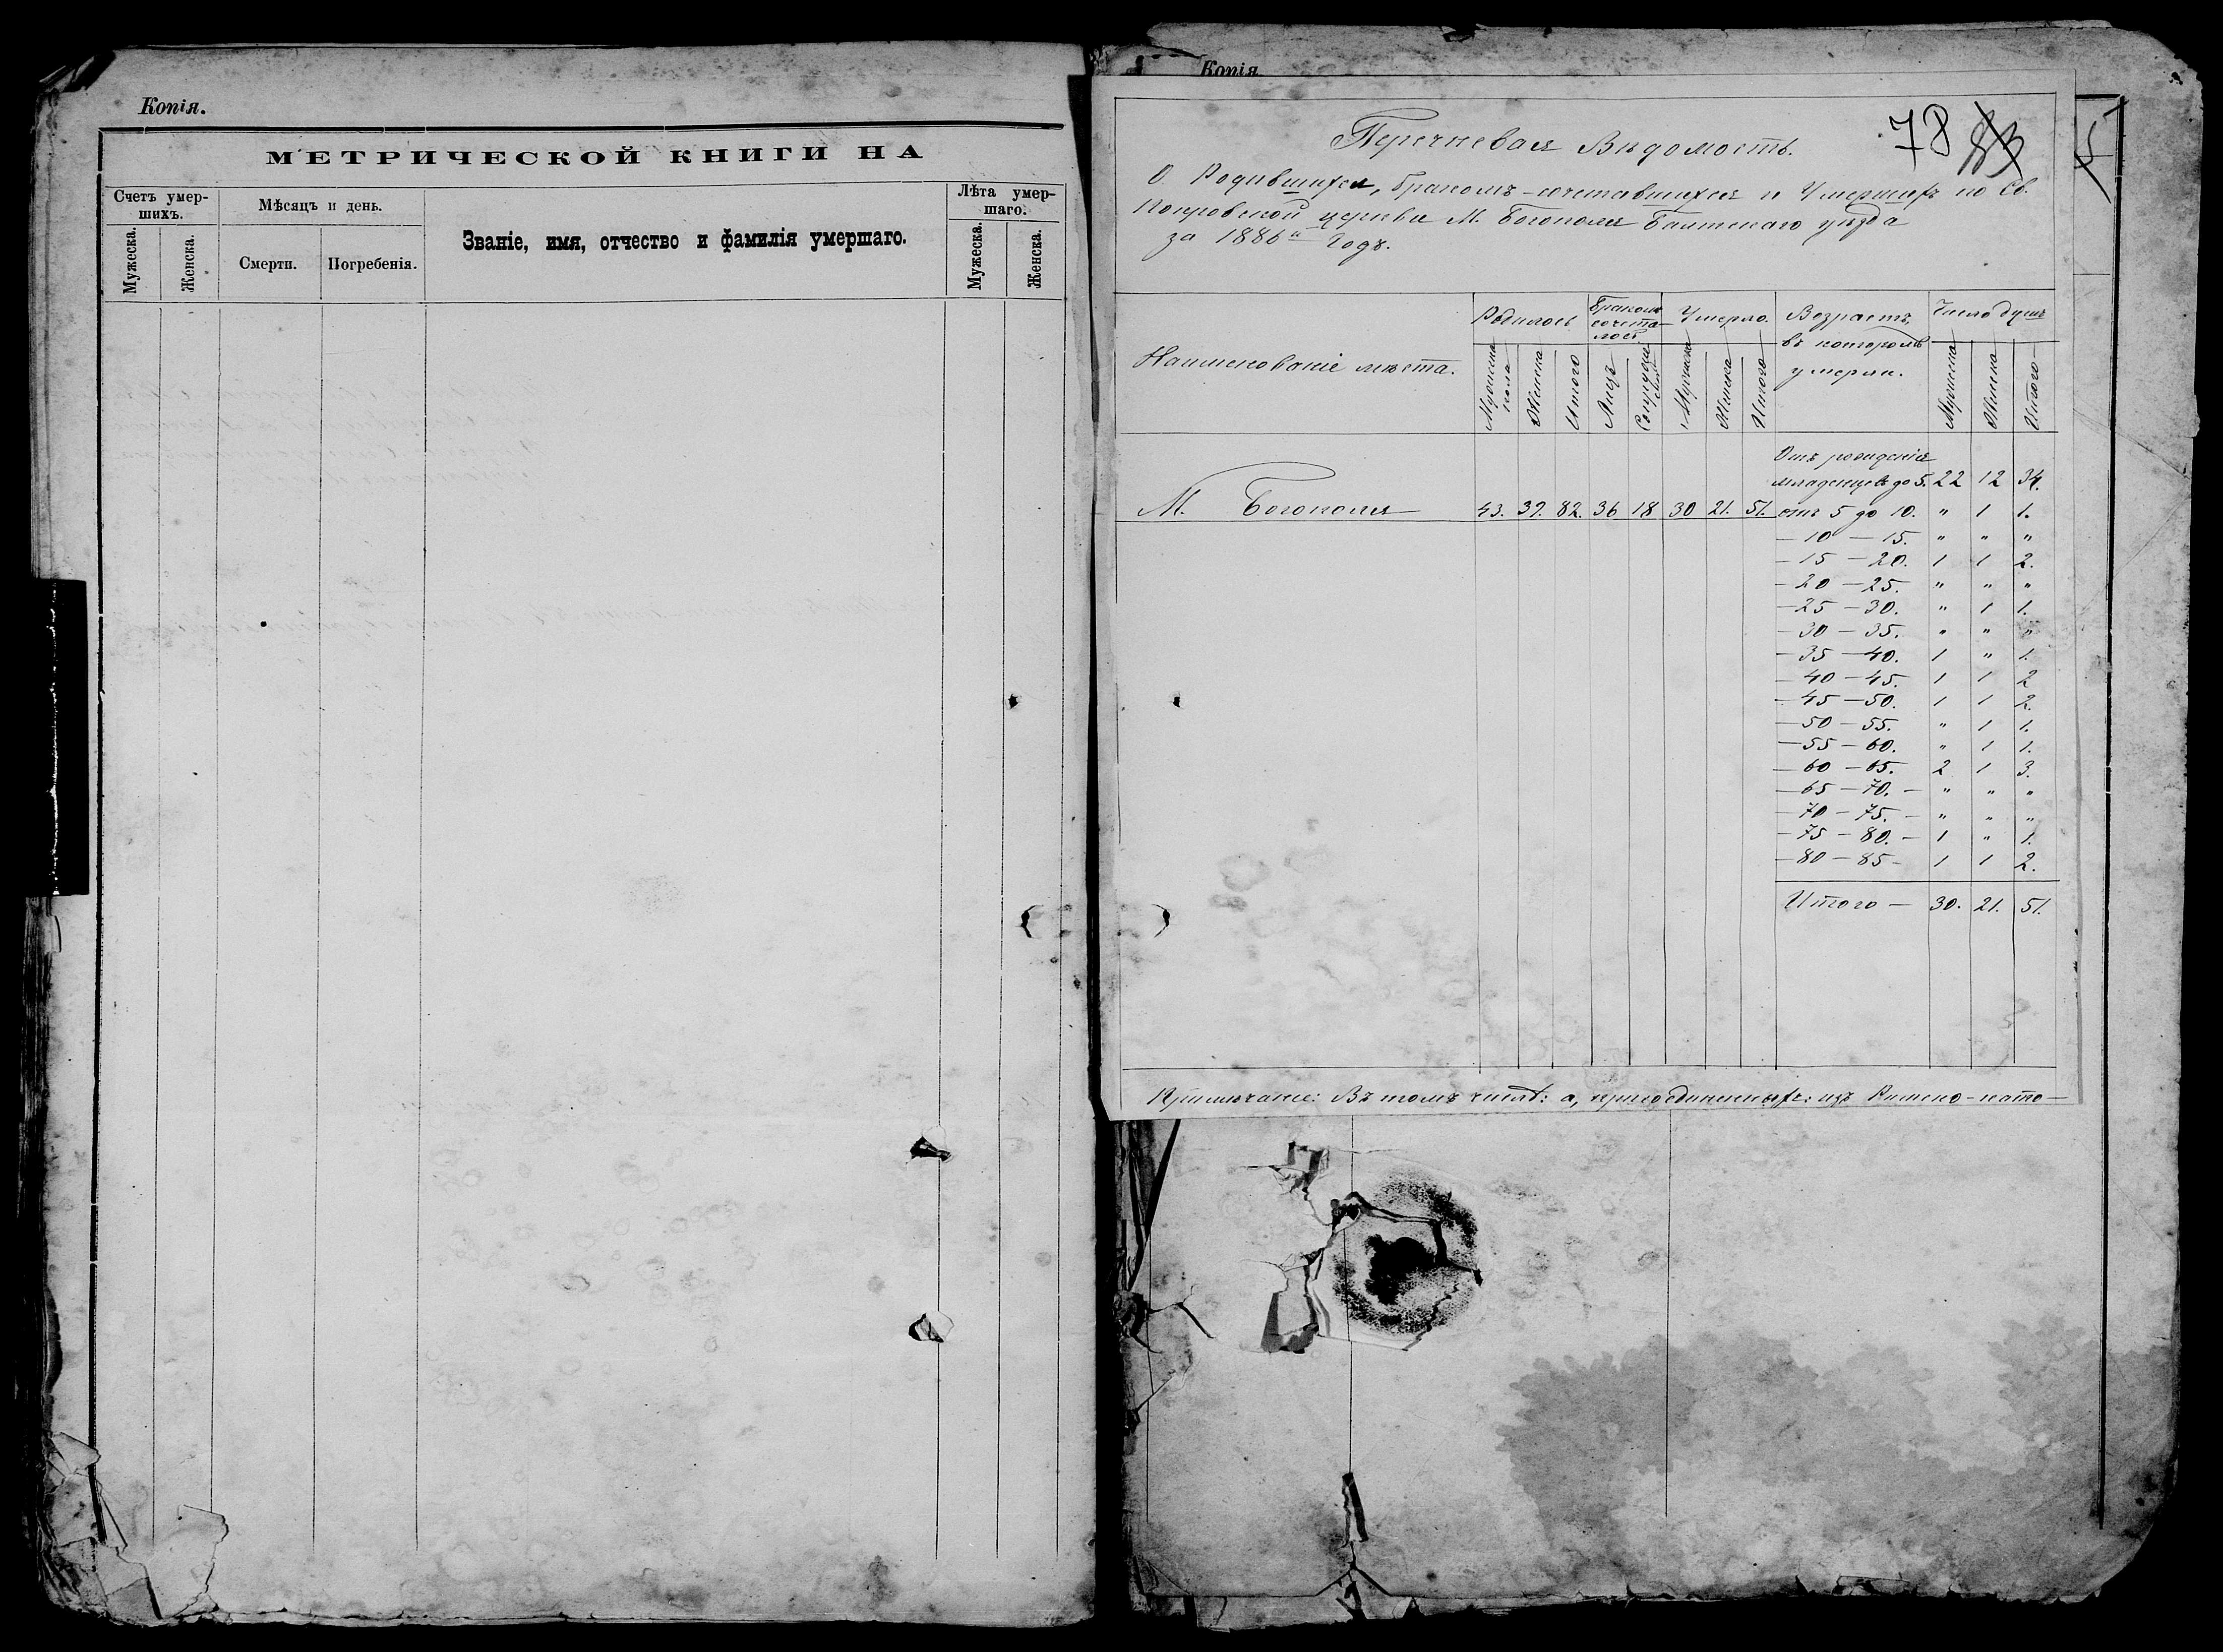 Копія.
МЕТРИЧЕСКОЙ КНИГИ НА
Счетъ умер-
шихъ.
Мѣсяцъ и день.
Званіе, имя, отчество и фамилія умершаго.
Лѣта умер-
шаго.
Мужеска.
Женска.
Смерти.
Погребенія.
Мужеска.
Женска.
Копія
78
Перечневая Вѣдомость.
О Родившихся, бракомъ-сочетавшихся и Умершихъ по Св.
Покровской церкви М. Богополя Балтскаго уѣзда
за 1886й Годъ.
Наименованіе мѣста.
Родилось
Бракомъ
сочета-
лось
Умерло.
Возрастъ,
въ которомъ
умерли.
Число душъ
Мужеска
пола
Женска
Итого
Лицъ
Супруж
Мужеска
Женска
Итого
Мужеска
Женска
Итого
Отъ рожденія
младенцевъ до 5. 22 12 34.
М. Богополя 43. 39. 82. 36 18 30 21. 51. отъ 5 до 10. " 1 1.
— 10 — 15. " " "
— 15 — 20. 1 1 2.
— 20 — 25. " " "
— 25 — 30. " 1 1.
— 30 — 35. " " "
— 35 — 40. 1 " 1.
— 40 — 45. 1 1 2
— 45 — 50. 1 1 2.
— 50 — 55. " 1 1.
— 55 — 60. " 1 1.
— 60 — 65. 2 1 3.
— 65 — 70. — " " "
— 70 — 75. — " " "
— 75 — 80. — 1 " 1.
— 80 — 85 — 1 1 2.
Итого — 30. 21. 51.
Примѣчаніе: Въ томъ числѣ: а, присоединенныхъ: изъ Римско-като-